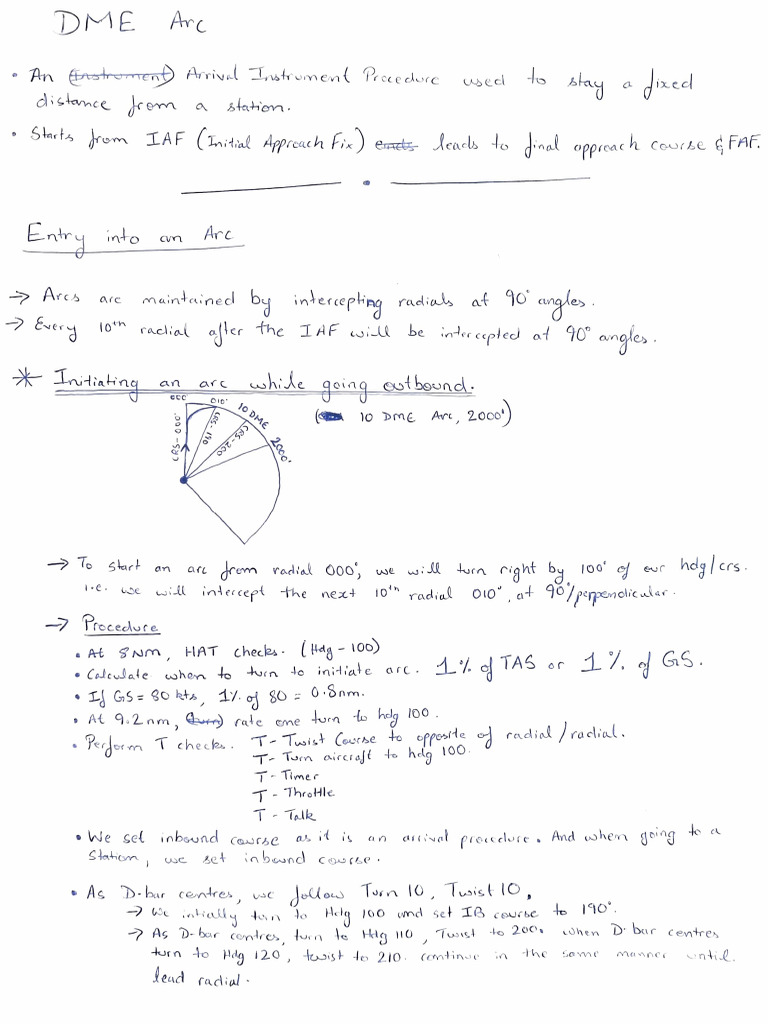 DME Arc
• An (Instrument) Arrival Instrument Procedure used to stay a fixed
distance from a station.
• Starts from IAF (Initial Approach Fix) ends leads to final approach course & FAF.
Entry into an Arc
→ Arcs are maintained by intercepting radials at 90° angles.
→ Every 10th radial after the IAF will be intercepted at 90° angles.
* Initiating an arc while going outbound.
(10 DME Arc, 2000')
000° 010° 10 DME 2000'
CRS-000°
CRS-190
CRS-200
→ To start an arc from radial 000°, we will turn right by 100° of our hdg/crs.
i.e. we will intercept the next 10th radial 010°, at 90°/perpendicular.
→ Procedure
• At 8NM, HAT checks. (Hdg - 100)
• Calculate when to turn to initiate arc. 1% of TAS or 1% of GS.
• If GS = 80 kts, 1% of 80 = 0.8nm.
• At 9.2nm, (turn) rate one turn to hdg 100.
• Perform T checks. T - Twist Course to opposite of radial/radial.
T - Turn aircraft to hdg 100.
T - Timer
T - Throttle
T - Talk
• We set inbound course as it is an arrival procedure. And when going to a
station, we set inbound course.
• As D-bar centres, we follow Turn 10, Twist 10,
→ We intially turn to Hdg 100 and set IB course to 190°.
→ As D-bar centres, turn to Hdg 110, Twist to 200. when D-bar centres
turn to Hdg 120, twist to 210. continue in the same manner until
lead radial.